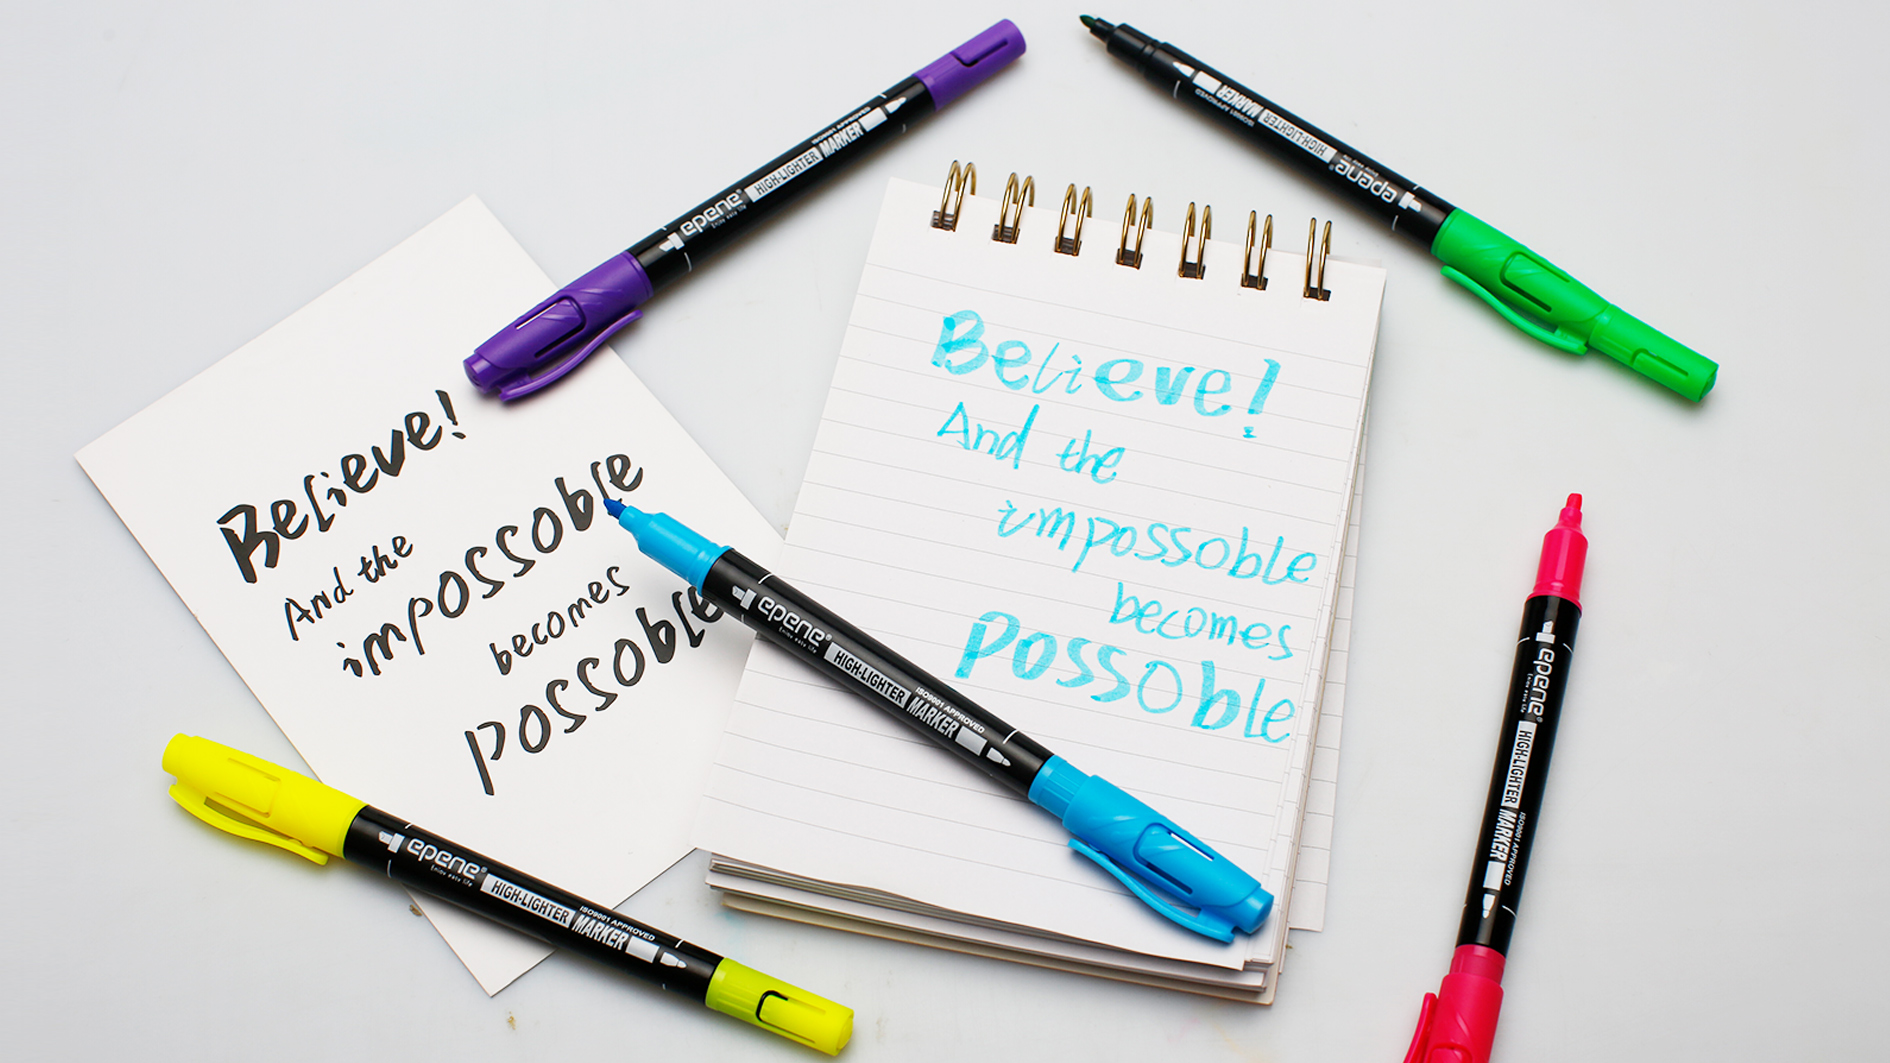 Believe!
And the
impossoble
becomes
possoble
Believe!
And the
impossoble
becomes
Possoble
epene®
Enjoy easy life
HIGH-LIGHTER
ISO9001 APPROVED
MARKER
epene®
HIGH-LIGHTER
ISO9001 APPROVED
MARKER
epene®
Enjoy easy life
HIGH-LIGHTER
ISO9001 APPROVED
MARKER
epene®
Enjoy easy life
HIGH-LIGHTER
ISO9001 APPROVED
MARKER
epene®
HIGH-LIGHTER
ISO9001 APPROVED
MARKER